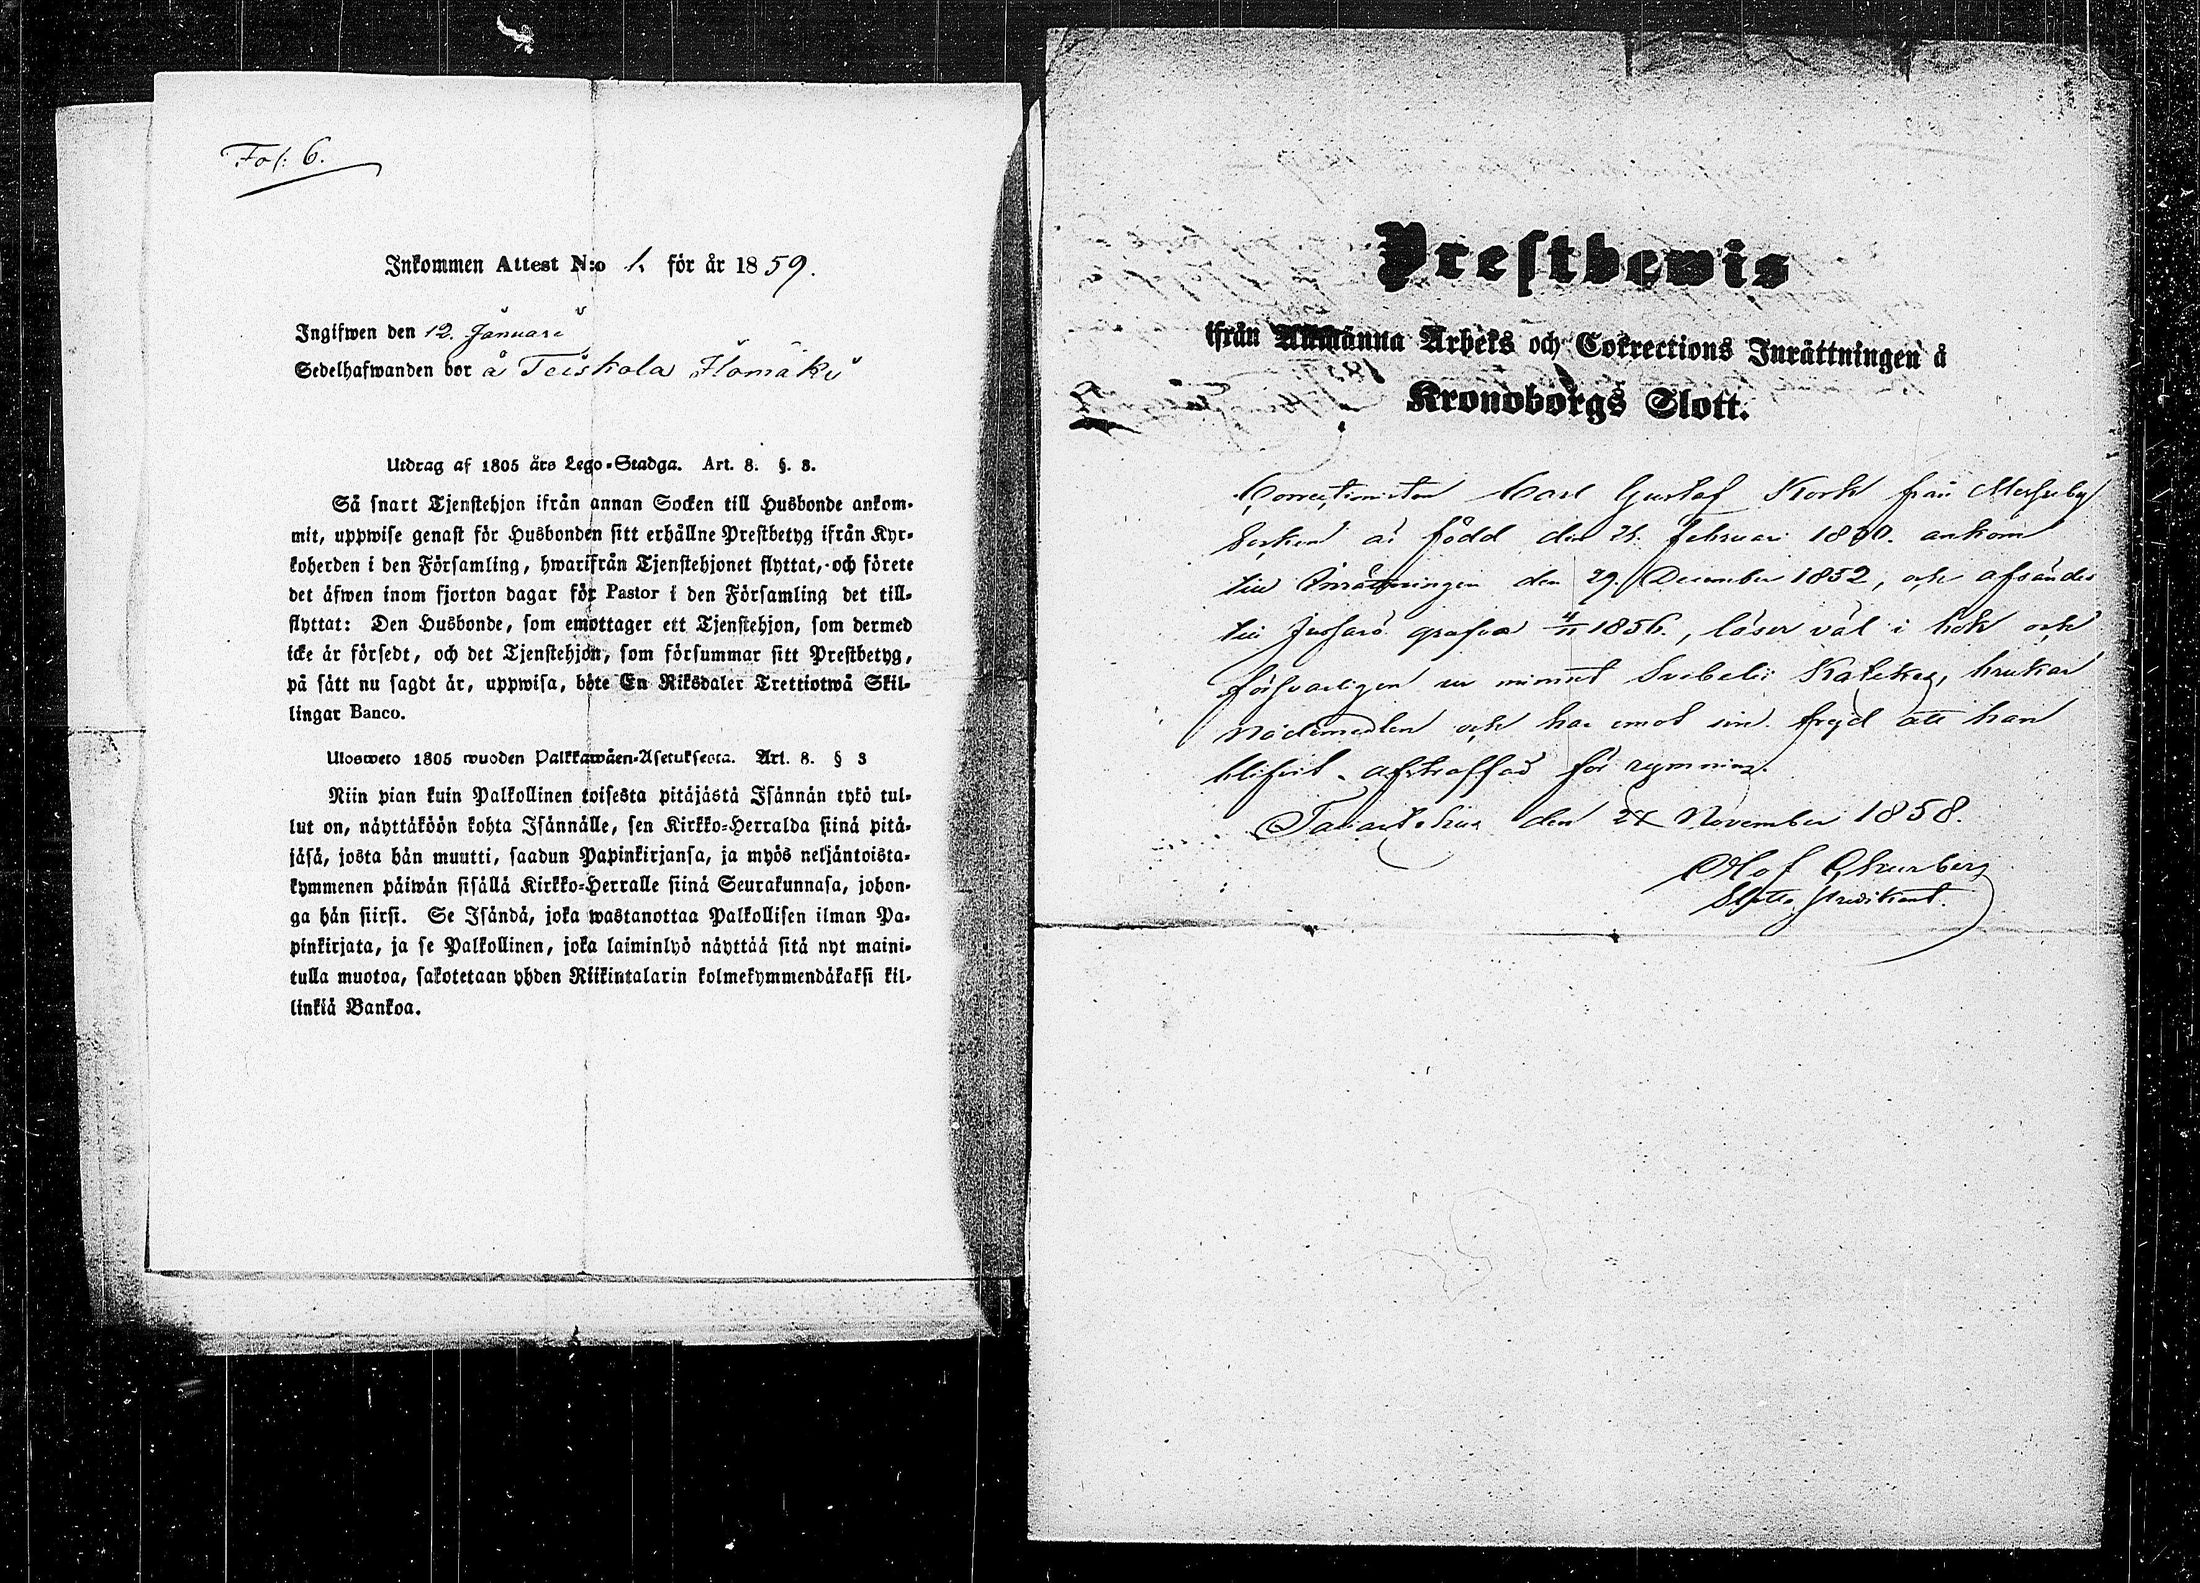 Fol: 6.
Inkommen Attest N:o 1. för år 1859.
Ingifwen den 12. Januari
Sedelhafwanden bor å Teiskola
Utdrag af 1805 års Lego-Stadga. Art. 8. §. 3.
Så snart Tjenstehjon ifrån annan Socken till Husbonde ankom-
mit, uppwise genast för Husbonden sitt erhållne Prestbetyg ifrån Kyr-
koherden i den Församling, hwarifrån Tjenstehjonet flyttat, och förete
det äfwen inom fjorton dagar för Pastor i den Församling det till-
flyttat: Den Husbonde, som emottager ett Tjenstehjon, som dermed
icke är försedt, och det Tjenstehjon, som försummar sitt Prestbetyg,
på sätt nu sagdt är, uppwisa, böte En Riksdaler Trettiotwå Skil-
lingar Banco.
Ulosweto 1805 wuoden Palkkawäen-Asetuksesta. Art. 8. § 3
Niin pian kuin Palkollinen toisesta pitäjästä Isännän tykö tul-
lut on, näyttäköön kohta Isännälle, sen Kirkko-Herralda siinä pitä-
jäsä, josta hän muutti, saadun Papinkirjansa, ja myös neljäntoista-
kymmenen päiwän sisällä Kirkko-Herralle siinä Seurakunnasa, johon-
ga hän siirsi. Se Isändä, joka wastanottaa Palkollisen ilman Pa-
pinkirjata, ja se Palkollinen, joka laiminlyö näyttää sitä nyt maini-
tulla muotoa, sakotetaan yhden Riikintalarin kolmekymmendäkaksi kil-
linkiä Bankoa.
Prestbewis
ifrån Allmänna Arbets och Corrections Inrättningen å
Kronoborgs Slott.
Correctionisten Carl Gustaf Kork från
Socken är född den 21. Februari ankom
till Inrättningen den 29. December 1852, och afsändes
till Jussarö grufva 4/11 1856., läser väl i bok och
försvarligen ur minnet Svebelii Kateches, brukar
Nådemedlen och har emot sin frejd att han
blifvit afstraffad för rymning.
Tavastehus den 24 November 1858.
Olof
Slotts Predikant.